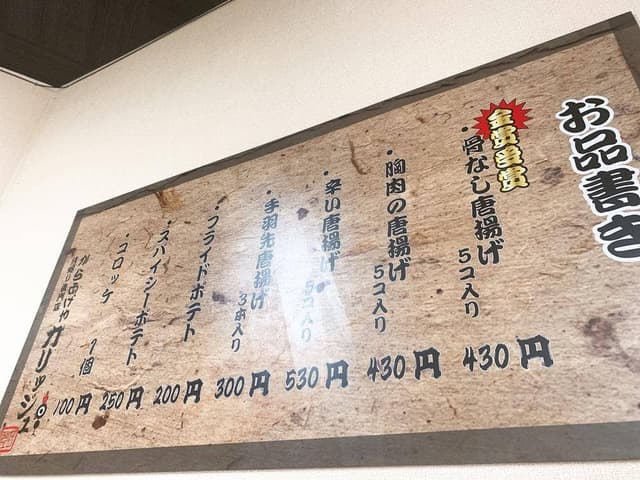 お品書き
金賞受賞
・骨なし唐揚げ
5コ入り
430円
・胸肉の唐揚げ
5コ入り
430円
・辛い唐揚げ
5コ入り
530円
・手羽先唐揚げ
3本入り
300円
・フライドポテト
200円
・スパイシーポテト
250円
・コロッケ
1個
100円
からあげや
ガリッジュ